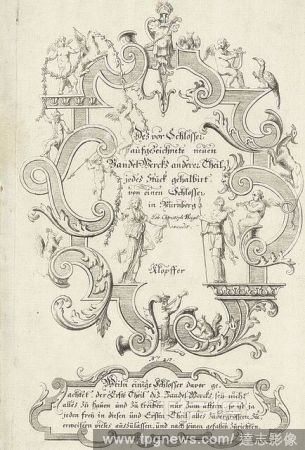 Des vor Schlosser
aufgezeichnete neuen
Bandel-Wercks anderer Theil,
jedes Stück gehalbirt
von einen Schlosser
in Nürnberg
Joh. Christoph Weigel
excudit
Klopffer
Weiln einige Schlosser davor ge-
achtet, der Erste Theil des Bandel Wercks sey nicht
alles zu hauen und zu treiben, nur zum
jeden frey in diesen und Ersten Theil alles zuvergrössern, zu
erweitern vieles auszulassen, und nach seinen gefallen
www.tpgnews.com/達志影像